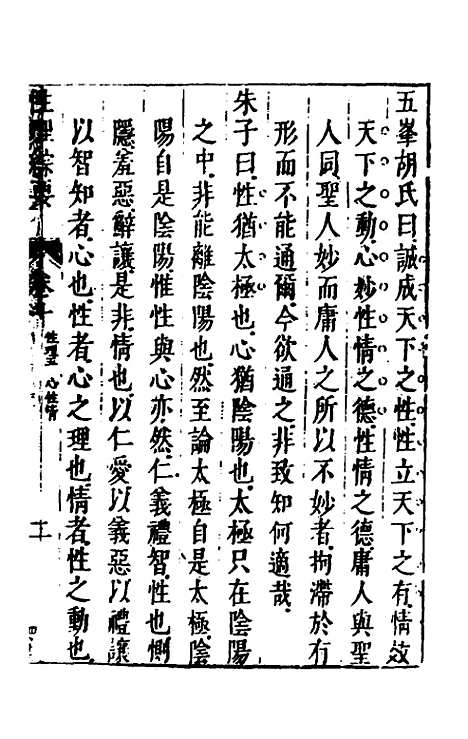 五峯胡氏曰誠成天下之性性立天下之有情效
天下之動心妙性情之德性情之德庸人與聖
人同聖人妙而庸人之所以不妙者拘滯於有
形而不能通爾今欲通之非致知何適哉
朱子曰性猶太極也心猶陰陽也太極只在陰陽
之中非能離陰陽也然至論太極自是太極陰
陽自是陰陽惟性與心亦然仁義禮智性也惻
隱羞惡辭讓是非情也以仁愛以義惡以禮讓
以智知者心也性者心之理也情者性之動也
性理綜要
心性情